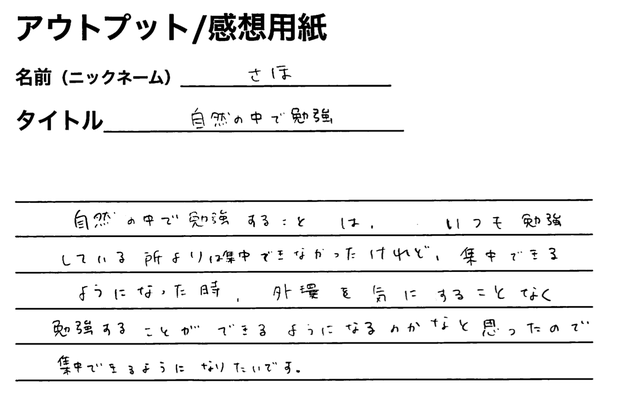 アウトプット/感想用紙
名前（ニックネーム） さほ
タイトル 自然の中で勉強
自然の中で勉強することは、いつも勉強
している所よりは集中できなかったけれど、集中できる
ようになった時、外環を気にすることなく
勉強することができるようになるのかなと思ったので
集中できるようになりたいです。